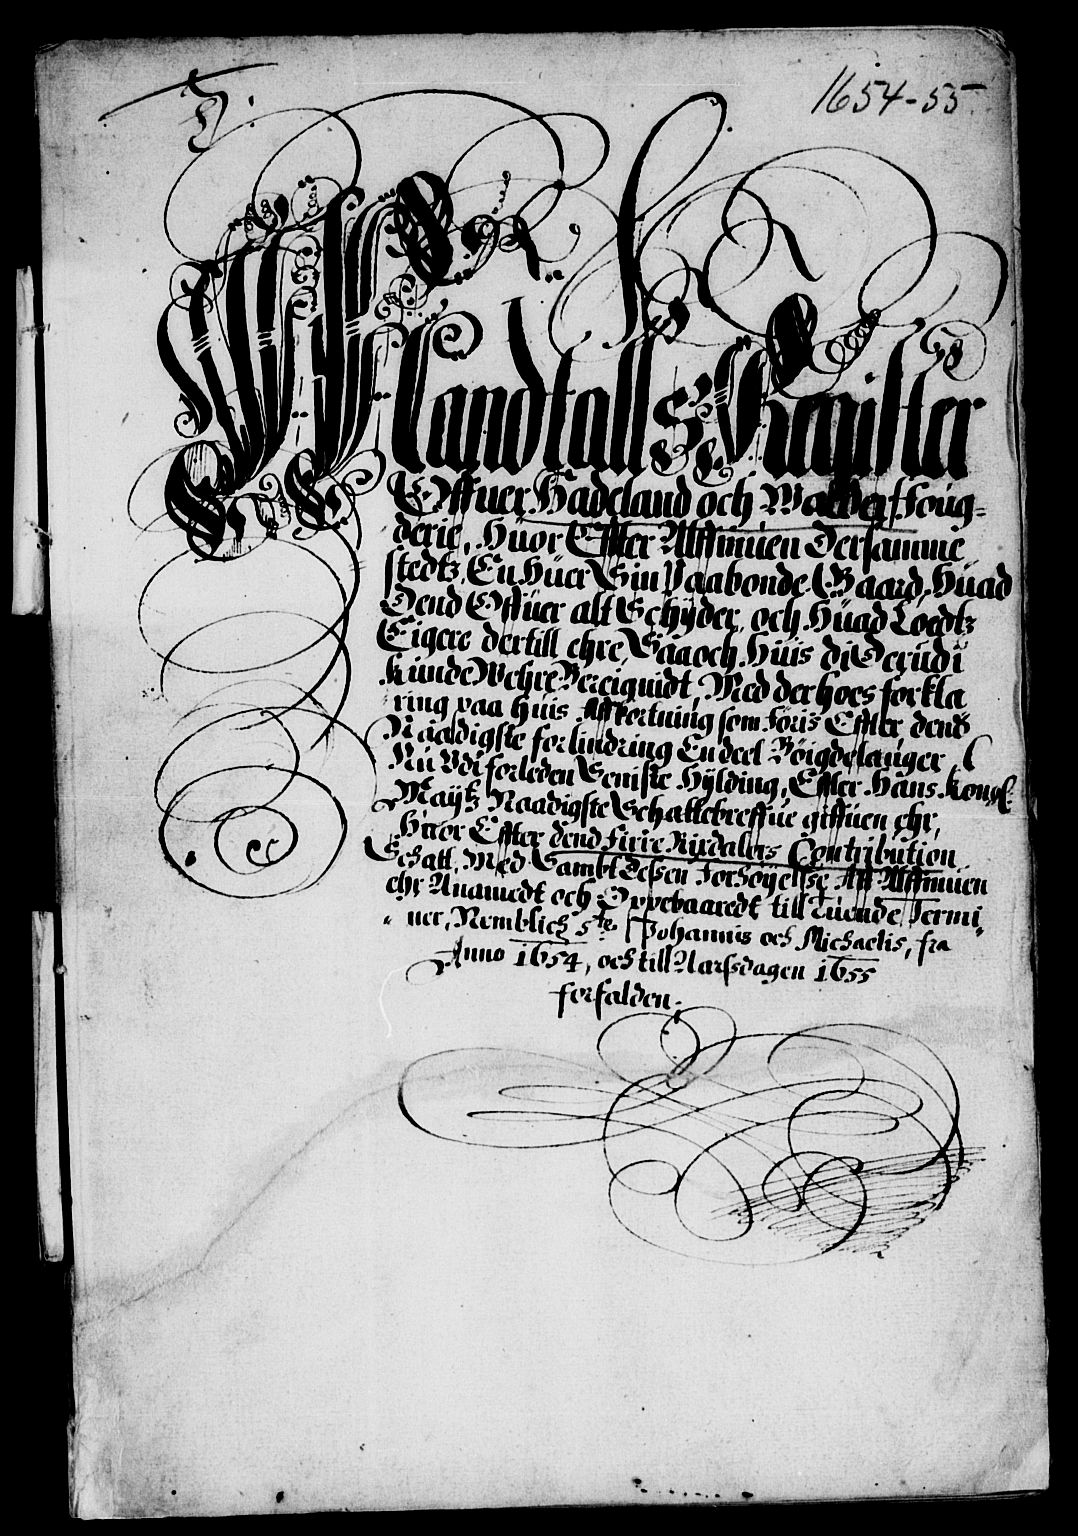 1654-55
Mandtalls Register
Offuer Hadeland och Valders foug=
derie, Huor Effter Almuen dersamme
stedtz, En huer Sin Paabonde Gaard, Huad
Dend Offuer alt Schÿder, och Huad Loedtz
Eigere dertill ehre, Saa och huis di Derudi
kunde Wehre Bereiguidt, Med derhoes forkla
ring paa huis Affkortning som föris Effter dend
Naadigste forlindring En deel Böigdelauger,
Nu Udi forleden Seniste Hÿlding, Effter Hans Kongl:
Maytz Naadigste Schattebreffue giffuen ehr,
Huor Effter dend firie Rixdalers Contribution
Schatt, Med Sambt dessen forhöyelsse Aff Almuen
ehr Anamedt och Oppebaaredt till tuende Termi
ner, Nemblich Ste Johannis och Michaelis, fra
Anno 1654, och till Aarssdagen 1655
forfalden.